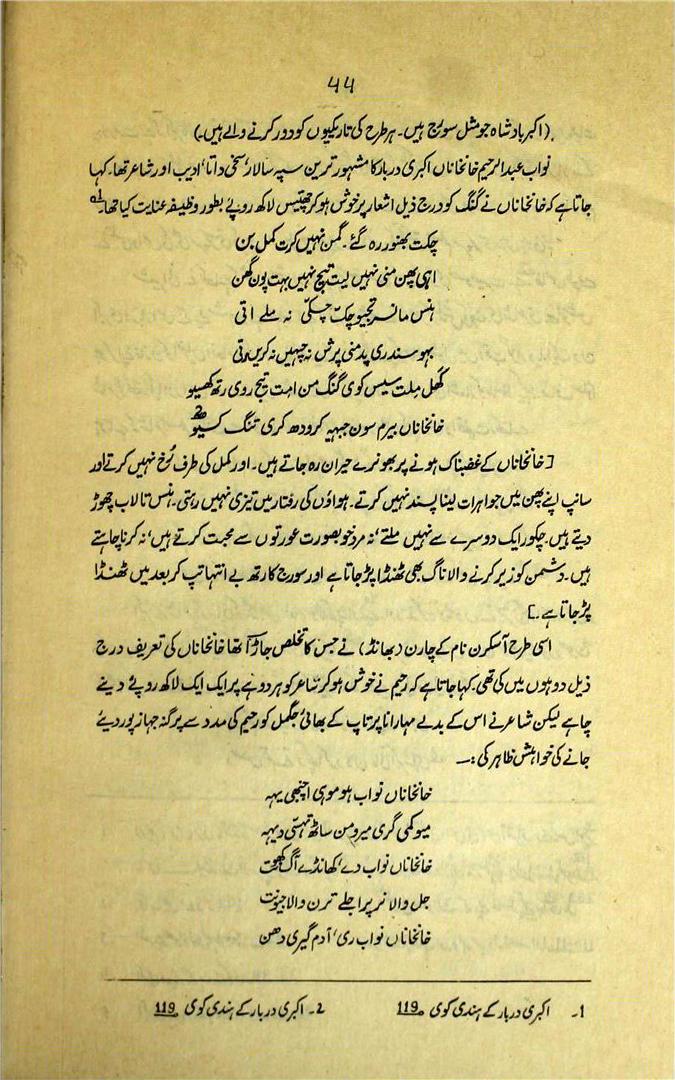 ۴۴
(اکبر بادشاہ جو مثل سورج ہیں۔ ہر طرح کی تاریکیوں کو دور کرنے والے ہیں۔)
نواب عبدالرحیم خانخاناں اکبری دربار کا مشہور ترین سپہ سالار، سخی داتا، ادیب اور شاعر تھا۔ کہا
جاتا ہے کہ خانخاناں نے گنگ کو درج ذیل اشعار پر خوش ہو کر چھتیس لاکھ روپئے بطور وظیفہ عنایت کیا تھا۔1
چکت بھنور رہ گئے۔ گمن نہیں کرت کمل بن
اہی پھن منی نہیں لیت تیج نہیں بہت پون گھن
ہنس مانسر تجیو چک چکّی نہ ملے اتی
بہو سندری پدمنی پرش نہ چہیں نہ کریں رتی
کھل ملت سیس کوی گنگ من امت تیج روی رتھ کھسیو
خانخاناں بیرم سون جبہہ کرودھ کری تنگ کسیو2
[خانخاناں کے غضبناک ہونے پر بھونرے حیران رہ جاتے ہیں۔ اور کمل کی طرف رُخ نہیں کرتے اور
سانپ اپنے پھن میں جواہرات لینا پسند نہیں کرتے۔ ہواؤں کی رفتار میں تیزی نہیں رہتی۔ ہنس تالاب چھوڑ
دیتے ہیں۔ چکور ایک دوسرے سے نہیں ملتے، نہ مرد خوبصورت عورتوں سے محبت کرتے ہیں، نہ کرنا چاہتے
ہیں۔ دشمن کو زیر کرنے والا ناگ بھی ٹھنڈا پڑ جاتا ہے اور سورج کا رتھ بے انتہا تپ کر بعد میں ٹھنڈا
پڑ جاتا ہے۔]
اسی طرح آسکرن نام کے چارن (بھانڈ) نے جس کا تخلص جاڑا تھا خانخاناں کی تعریف درج
ذیل دوہوں میں کی تھی۔ کہا جاتا ہے کہ رحیم نے خوش ہو کر شاعر کو ہر دوہے پر ایک ایک لاکھ روپئے دینے
چاہے لیکن شاعر نے اس کے بدلے مہارانا پرتاپ کے بھائی جگمل کو رحیم کی مدد سے پرگنہ جہاز پور دیئے
جانے کی خواہش ظاہر کی:۔
خانخاناں نواب ہو موہی اچنبھی یہہ
میو کمی گری میرو من ساٹھ تہسّی دیہہ
خانخاناں نواب دے، کھانڈے آگ کھوت
جل والا نر پراجلے ترن والا جیونت
خانخاناں نواب ری، آدم گیری دھن
1۔ اکبری دربار کے ہندی کوی 119 2۔ اکبری دربار کے ہندی کوی 119